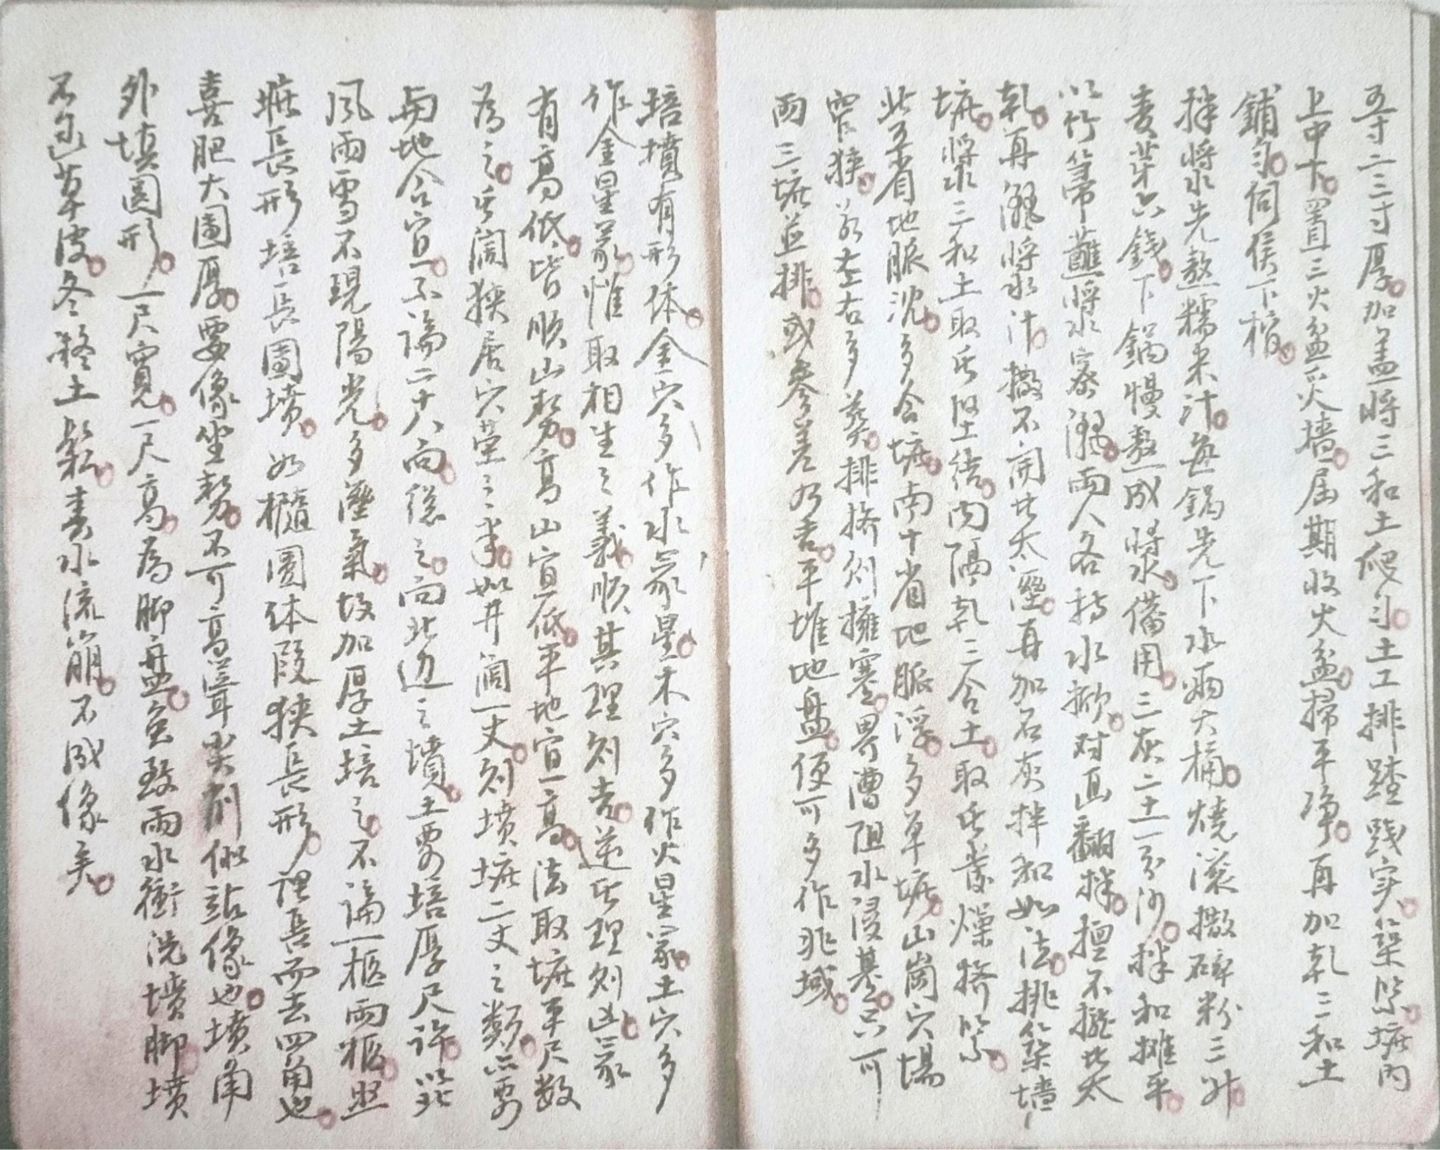 五寸二三寸厚。加盖將三和土爬勻。土工排踏践实。築緊壙內
上中下。置三火盆灭墙。届期收火盆。掃平净。再加乾二和土
鋪勻。伺侯下棺。
拌將先熬糯米汁。每鍋先下水兩大桶。燒滾撒碎粉三升
麦芽六錢。下鍋慢熬成漿。備用。三灰二土一分沙。拌和摊平。
以竹箒蘸漿水寮潑。兩人各持水掀。对面翻拌。擅不擬太
乾。再潑漿汁。撒不開 太溼。再加石灰拌和如法。挑築墙
壙。漿水三和土取其坚结。内隔乾二合土。取其收燥擠紧。
北 省地脈沉。多合壙。南十省地脈浮。多单壙。山崗穴場
窄狭。若左右多葬。排擠則擁塞。界漕阻水浸墓。只可
兩三壙並排。或參差 吉。平堆地盤。便可多作兆域。
培墳有形体。金穴多作水冢星。木穴多作火星冢。土穴多
作金星冢。惟取相生之義。順其理則吉。逆其理則凶。冢
有高低。皆順山勢。高山宜低。平地宜一高。法取壙平尺数
為之。其闊狹居穴塋之半。如井阔一丈。则墳壙二丈之類。亦要
与地合宜。不論二十八向。縂之向北边之墳。土要培厚尺許。以北
風雨雪不現陽光。多溼氣。故加厚土培之。不論一柩兩柩。照
壙長形培長圆墳。如橢圆体段狭長形。 長而去四角也。
喜肥大圆厚。要像坐勢。不可高聳尖削似站像也。墳角
外填圆形。一尺寬。一尺高。為脚盤。免致雨水衝洗墳脚。墳
不 草皮。冬凝土鬆。春水流崩。不成像矣。